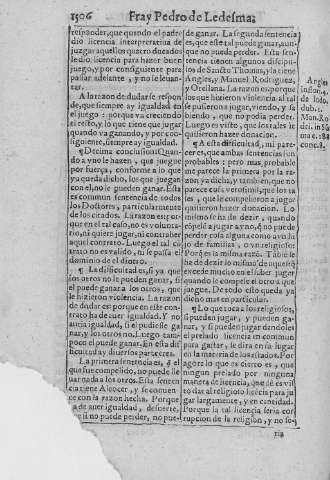 1506
Fray Pedro de Ledesma;
responder, que quando el padre
dio licencia interpretatiua de
juzgar aquellos quatro ducados
le dio licencia para hazer buen
juego, y por consiguiente para
passar adelante, y no le leuan-
tar.
A la razon de dudar se respon-
de, que siempre ay igualdad en
el juego: porque va creciendo
el resto, y lo que tiene que jugar
quando va ganando, y por con-
siguiente, siempre ay igualdad.
¶ Decima conclusion. Quan-
do a vno le hazen, que juegue
por fuerça, conforme a lo que
ya queda dicho, los que juegan
con el, no le pueden ganar. Esta
es commun sentencia de todos
los Doctores, particularmente
de los citados. La razon es: por
que en el tal caso, no es volunta-
rio, ni quiere jugar, ni contrahe
aquel contrato. Luego el tal con-
trato no es valido, ni se passa el
dominio de el dinero.
¶ La difficultad es, si ya que
los otros no le pueden ganar, si
el puede ganara los otros, que
le hizieron violencia. La razon
de dudar es: porque en este con-
trato ha de auer igualdad. Y no
auria igualdad, si el pudiesse ga-
nar, y los otros no. Luego tam-
poco el puede ganar. En esta dif-
ficultad ay diuersos pareceres.
La primera sentencia es, q̃ el
que fue compelido, no puede lle
uar nada a los otros. Esta senten
cia tiene Alcocer, y secundum
la razon hecha. Porque
ha de auer igualdad, de suerte,
que si no puede perder, no pue-
de ganar. La segunda sentencia
es, que este tal puede ganar, aun-
que no puede perder. Esta sen-
tencia tienen algunos discipu-
los de Sancto Thomas, y la tiene
Angles, y Manuel Rodriguez,
y Orellana. La razon es, porque
los que hizieron violencia al tal
se pusieron a jugar, viendo, y sa-
biendo, que no podia perder.
Luego es visto, que los tales le
quisieron hazer donacion.
¶ A esta difficultad, mi pare-
cer es, que ambas sentencias son
probables: pero mas probable
me parece la primera por la ra-
zon ya dicha, y tambien, que no
parece cosa verosimil, que los ta-
les, que le compelieron a jugar
quisieron hazer donacion. Lo
mismo se ha de dezir, quando
cõpele a jugar a vno, q̃ no puede
perder cosa alguna como a vn hi-
jo de familias, o vn religioso:
Porq̃ es la misma razõ. Tãbiẽ se
ha de dezir lo mismo de aquel q̃
excede mucho en el saber jugar
quando le compele el otro a que
juegue. De todo esto queda ya
dicho mas en particular.
¶ Lo que toca a los religiosos,
si pueden jugar, y si pueden ga-
nar, y si pueden jugar dandoles
el prelado licencia in commun
para gastar, se dira en su lugar
en la materia de los estados. Por
agora lo que es cierto es, que
ningun prelado por ninguna
manera de licencia, que dè es vis
to dar al religioso licēcia para ju
gar largamente, y en cantidad.
Porque la tal licencia seria cor
rupcion de la religion, y no se-
ria
Angles
in flor. 4.
de ludo.
dub. 1.
Man. Ro
conc. 8.